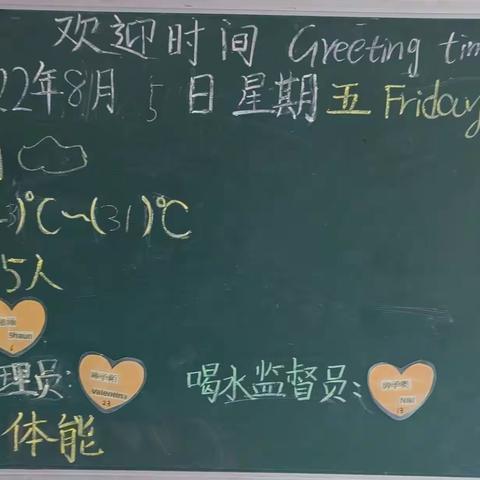 欢迎时间 Greeting tim
22年8月5日星期五 Friday
3)℃~(31)℃
5人
Shaun
6
理员:
Valentina
23
喝水监督员:
Niki
13
体能